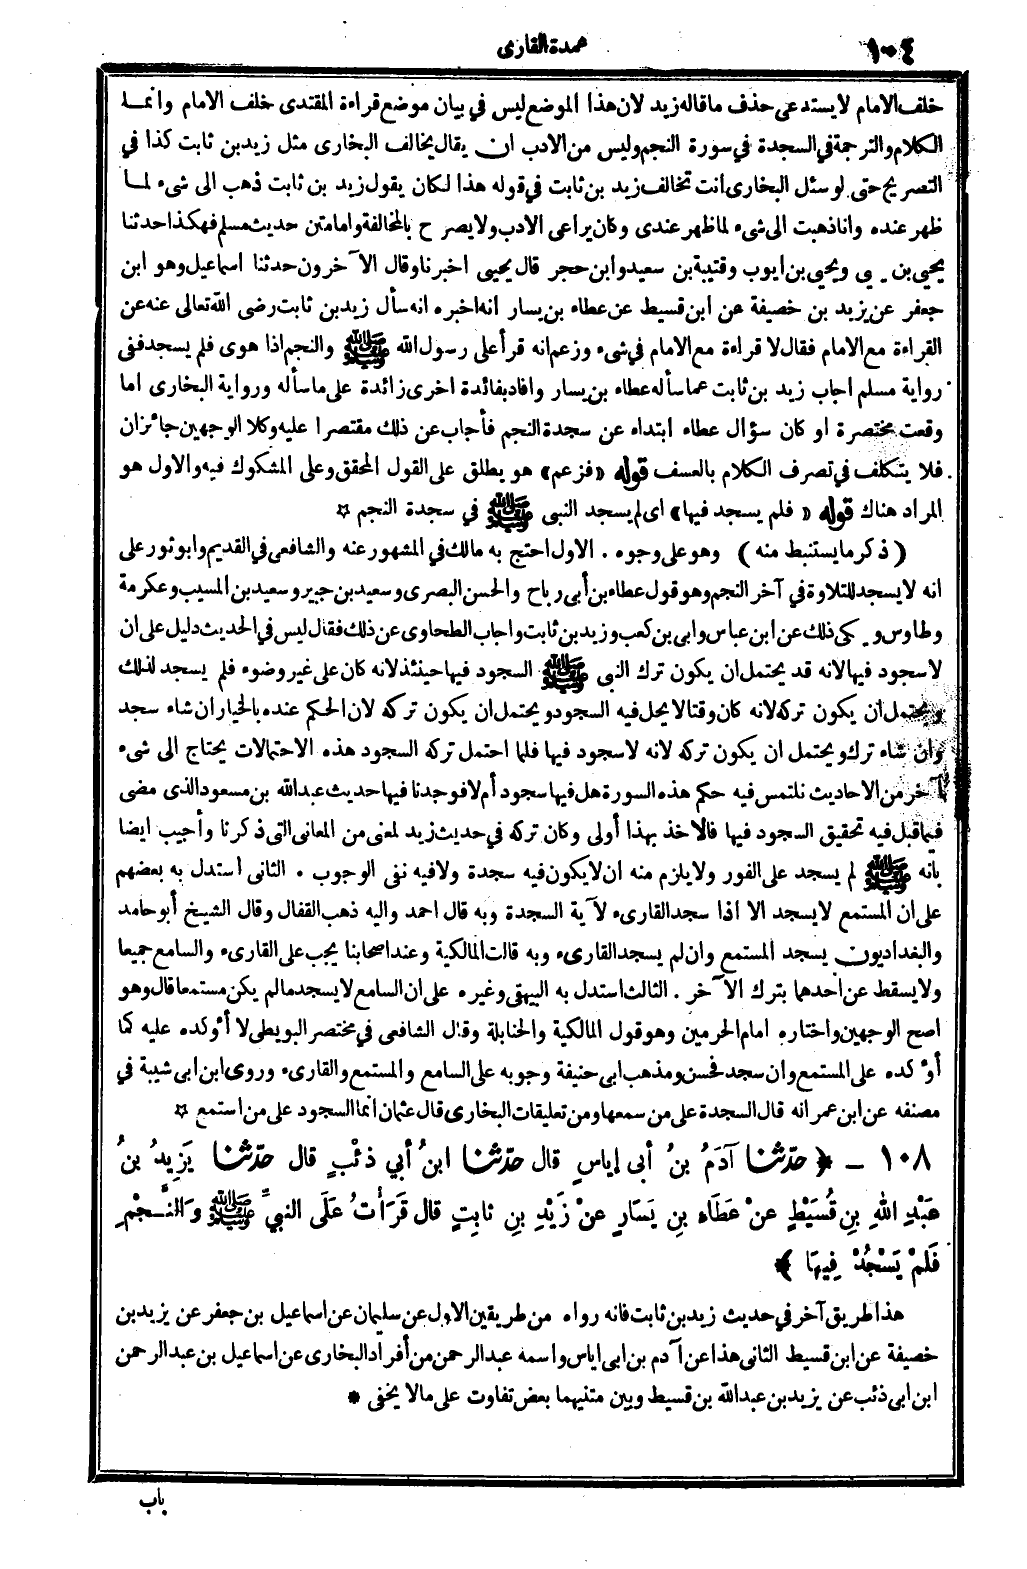 ١٠٤
عمدة القارى
خلف الامام لا يستدعى حذف ما قاله زيد لان هذا الموضع ليس في بيان موضع قراءة المقتدى خلف الامام وانما
الكلام والترجمة في السجدة في سورة النجم وليس من الادب ان يقال يخالف البخارى مثل زيد بن ثابت كذا في
التصريح حتى لو سئل البخارى انت تخالف زيد بن ثابت في قوله هذا لكان يقول زيد بن ثابت ذهب الى شىء لما
ظهر عنده وانا ذهبت الى شىء لما ظهر عندى وكان يراعى الادب ولا يصرح بالمخالفة واما متن حديث مسلم فهكذا حدثنا
يحيى بن يحيى ويحيى بن ايوب وقتيبة بن سعيد وابن حجر قال يحيى اخبرنا وقال الآخرون حدثنا اسماعيل وهو ابن
جعفر عن يزيد بن خصيفة عن ابن قسيط عن عطاء بن يسار انه اخبره انه سأل زيد بن ثابت رضى الله تعالى عنه عن
القراءة مع الامام فقال لا قراءة مع الامام في شىء وزعم انه قرأ على رسول الله ﷺ والنجم اذا هوى فلم يسجد ففى
رواية مسلم اجاب زيد بن ثابت عما سأله عطاء بن يسار وافاد بفائدة اخرى زائدة على ما سأله ورواية البخارى اما
وقعت مختصرة او كان سؤال عطاء ابتداء عن سجدة النجم فأجاب عن ذلك مقتصرا عليه وكلا الوجهين جائزان
فلا يتكلف في تصرف الكلام بالعسف قوله «فزعم» هو يطلق على القول المحقق وعلى المشكوك فيه والاول هو
المراد هناك قوله «فلم يسجد فيها» اى لم يسجد النبى ﷺ في سجدة النجم ☆
(ذكر ما يستنبط منه) وهو على وجوه. الاول احتج به مالك في المشهور عنه والشافعى في القديم وابو ثور على
انه لا يسجد للتلاوة في آخر النجم وهو قول عطاء بن أبى رباح والحسن البصرى وسعيد بن جبير وسعيد بن المسيب وعكرمة
وطاوس ويحكى ذلك عن ابن عباس وابى بن كعب وزيد بن ثابت واجاب الطحاوى عن ذلك فقال ليس في الحديث دليل على ان
لا سجود فيها لانه قد يحتمل ان يكون ترك النبى ﷺ السجود فيها حينئذ لانه كان على غير وضوء فلم يسجد لذلك
ويحتمل ان يكون تركه لانه كان وقتا لا يحل فيه السجود ويحتمل ان يكون تركه لان الحكم عنده بالخيار ان شاء سجد
وان شاء ترك ويحتمل ان يكون تركه لانه لا سجود فيها فلما احتمل تركه السجود هذه الاحتمالات يحتاج الى شىء
آخر من الاحاديث نلتمس فيه حكم هذه السورة هل فيها سجود أم لا فوجدنا فيها حديث عبد الله بن مسعود الذى مضى
فيما قبل فيه تحقيق السجود فيها فالاخذ بهذا أولى وكان تركه في حديث زيد لمعنى من المعانى التى ذكرنا وأجيب ايضا
بانه ﷺ لم يسجد على الفور ولا يلزم منه ان لا يكون فيه سجدة ولا فيه نفى الوجوب. الثانى استدل به بعضهم
على ان المستمع لا يسجد الا اذا سجد القارىء لآية السجدة وبه قال احمد واليه ذهب القفال وقال الشيخ أبو حامد
والبغداديون يسجد المستمع وان لم يسجد القارىء وبه قالت المالكية وعند اصحابنا يجب على القارىء والسامع جميعا
ولا يسقط عن أحدهما بترك الآخر. الثالث استدل به البيهقى وغيره على ان السامع لا يسجد ما لم يكن مستمعا قال وهو
اصح الوجهين واختاره امام الحرمين وهو قول المالكية والحنابلة وقال الشافعى في مختصر البويطى لا أؤكده عليه كما
أؤكده على المستمع وان سجد فحسن ومذهب ابى حنيفة وجوبه على السامع والمستمع والقارىء وروى ابن ابى شيبة في
مصنفه عن ابن عمر انه قال السجدة على من سمعها ومن تعليقات البخارى قال عثمان انما السجود على من استمع ☆
١٠٨ ـ ﴿حدّثنا آدَمُ بنُ أبى إياسٍ قال حدّثنا ابنُ أبي ذئْبٍ قال حدّثنا يَزِيدُ بنُ
عَبْدِ اللهِ بنِ قُسَيْطٍ عنْ عطَاءِ بنِ يَسَارٍ عنْ زَيْدِ بنِ ثابِتٍ قال قَرَأتُ علَى النبيِّ ﷺ وَالنَّجْمِ
فَلَمْ يَسْجُدْ فِيهَا﴾
هذا طريق آخر في حديث زيد بن ثابت فانه رواه من طريقين الاول عن سليمان عن اسماعيل بن جعفر عن يزيد بن
خصيفة عن ابن قسيط الثانى هذا عن آدم بن ابى اياس واسمه عبد الرحمن من أفراد البخارى عن اسماعيل بن عبد الرحمن
ابن ابى ذئب عن يزيد بن عبد الله بن قسيط وبين متنيهما بعض تفاوت على ما لا يخفى *
باب